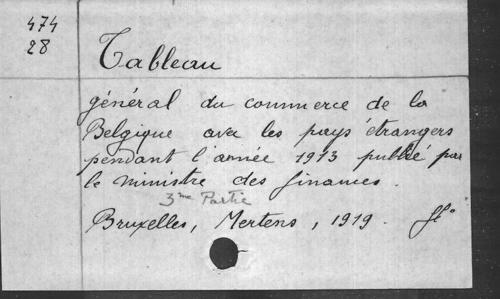 474
28
Tableau
général du commerce de la
Belgique avec les pays étrangers
pendant l'année 1913 publié par
le ministre des finances.
3me Partie
Bruxelles, Mertens, 1919. fo